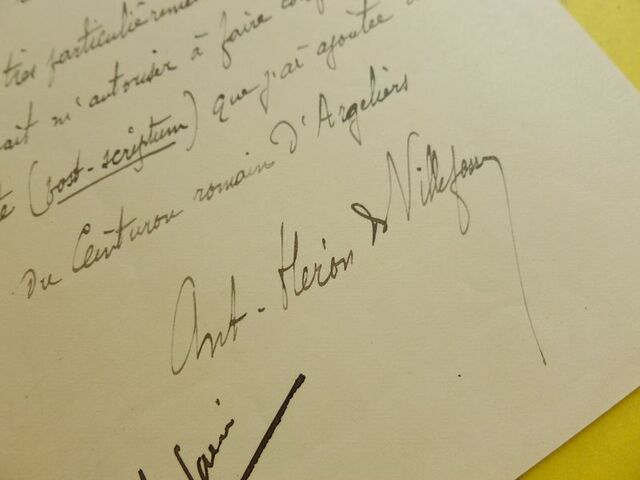 très particulièrement
ait m'autoriser à faire
(post-scriptum) que j'ai ajoutée
Du Ceinturon romain D'Argeliers
Ant-Héron de Villefosse